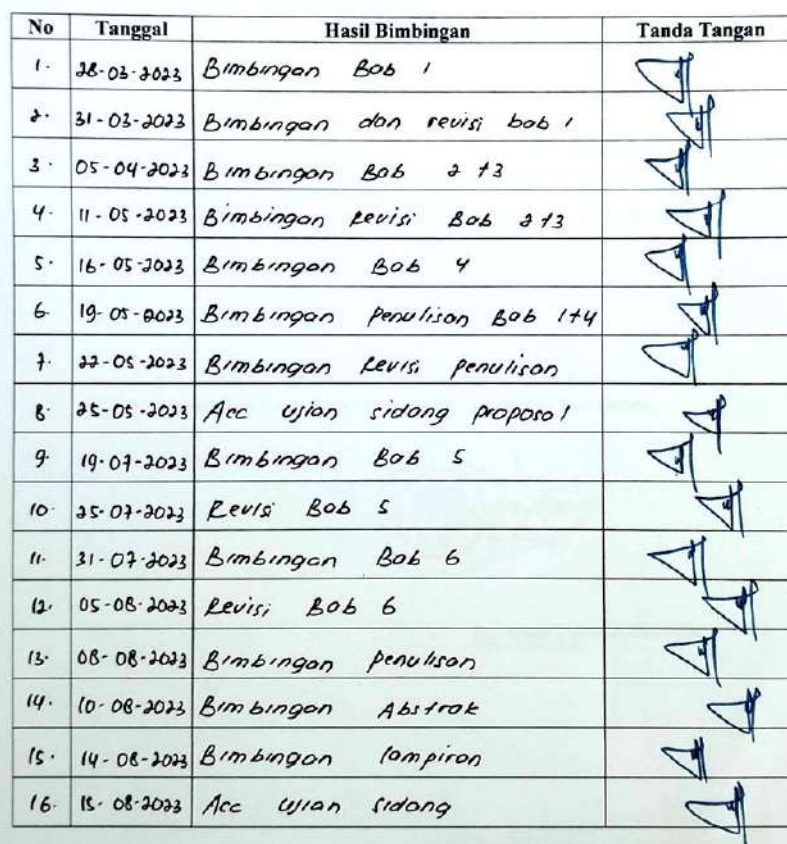 No Tanggal Hasil Bimbingan Tanda Tangan
1. 28-03-2023 Bimbingan Bab 1
2. 31-03-2023 Bimbingan dan revisi bab 1
3. 05-04-2023 Bimbingan Bab 2+3
4. 11-05-2023 Bimbingan Revisi Bab 2+3
5. 16-05-2023 Bimbingan Bab 4
6. 19-05-2023 Bimbingan Penulisan Bab 1+4
7. 22-05-2023 Bimbingan Revisi penulisan
8. 25-05-2023 Acc ujian sidang proposal
9. 19-07-2023 Bimbingan Bab 5
10. 25-07-2023 Revisi Bab 5
11. 31-07-2023 Bimbingan Bab 6
12. 05-08-2023 Revisi Bab 6
13. 08-08-2023 Bimbingan penulisan
14. 10-08-2023 Bimbingan Abstrak
15. 14-08-2023 Bimbingan lampiran
16. 15-08-2023 Acc ujian sidang